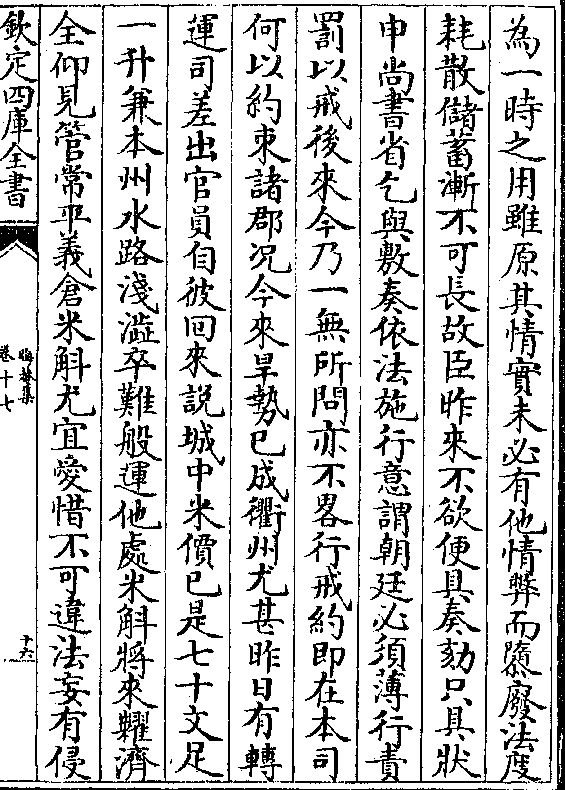 為一時之用雖原其情實未必有他情弊而隳廢法度
耗散儲蓄漸不可長故臣昨來不欲便具奏劾只具狀
申尚書省乞與敷奏依法施行意謂朝廷必須薄行責
罰以戒後來今乃一無所問亦不畧行戒約即在本司
何以約束諸郡况今來旱勢已成衢州尤甚昨日有轉
運司差出官員自彼回來說城中米價已是七十文足
一升兼本州水路淺澁卒難般運他處米斛將來糶濟
全仰見管常平義倉米斛尤宜愛惜不可違法妄有侵
欽定四庫全書
晦菴集
卷十七
十六